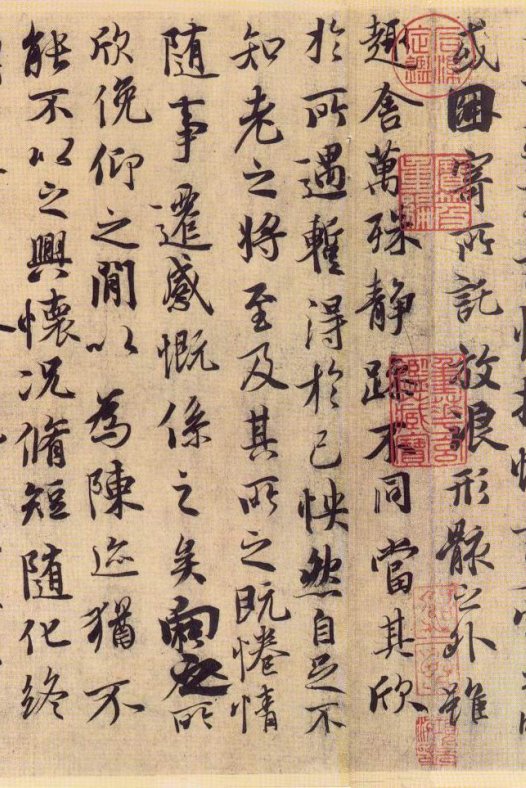 或因寄所託放浪形骸之外雖
趣舍萬殊静躁不同當其欣
於所遇蹔得於己怏然自足不
知老之將至及其所之既惓情
随事遷感慨係之矣向之所
欣俛仰之閒以為陳迹猶不
能不以之興懷况脩短随化終